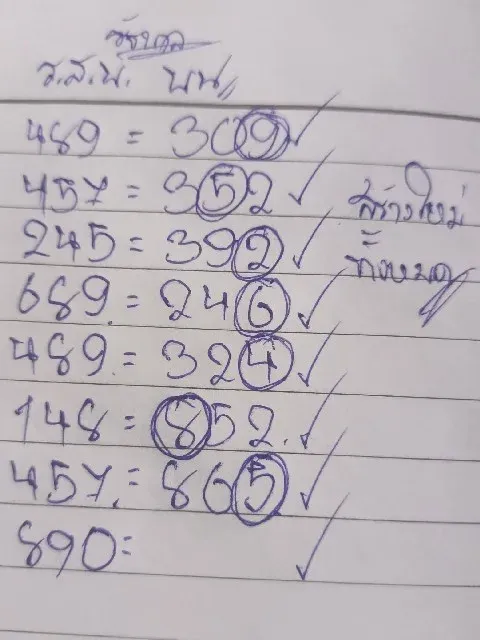 ร.ส.น. บน
489 = 309
457 = 352
สร้างใหม่
245 = 392
ทั้งหมด
689 = 246
489 = 324
148 = 852
457 = 865
890 =